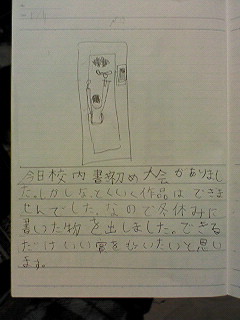 今日校内書初め大会がありまし
た。しかしなっとくいく作品はできま
せんでした。なので冬休みに
書いた物を出しました。できる
だけいい賞をいたいと思い
ます。